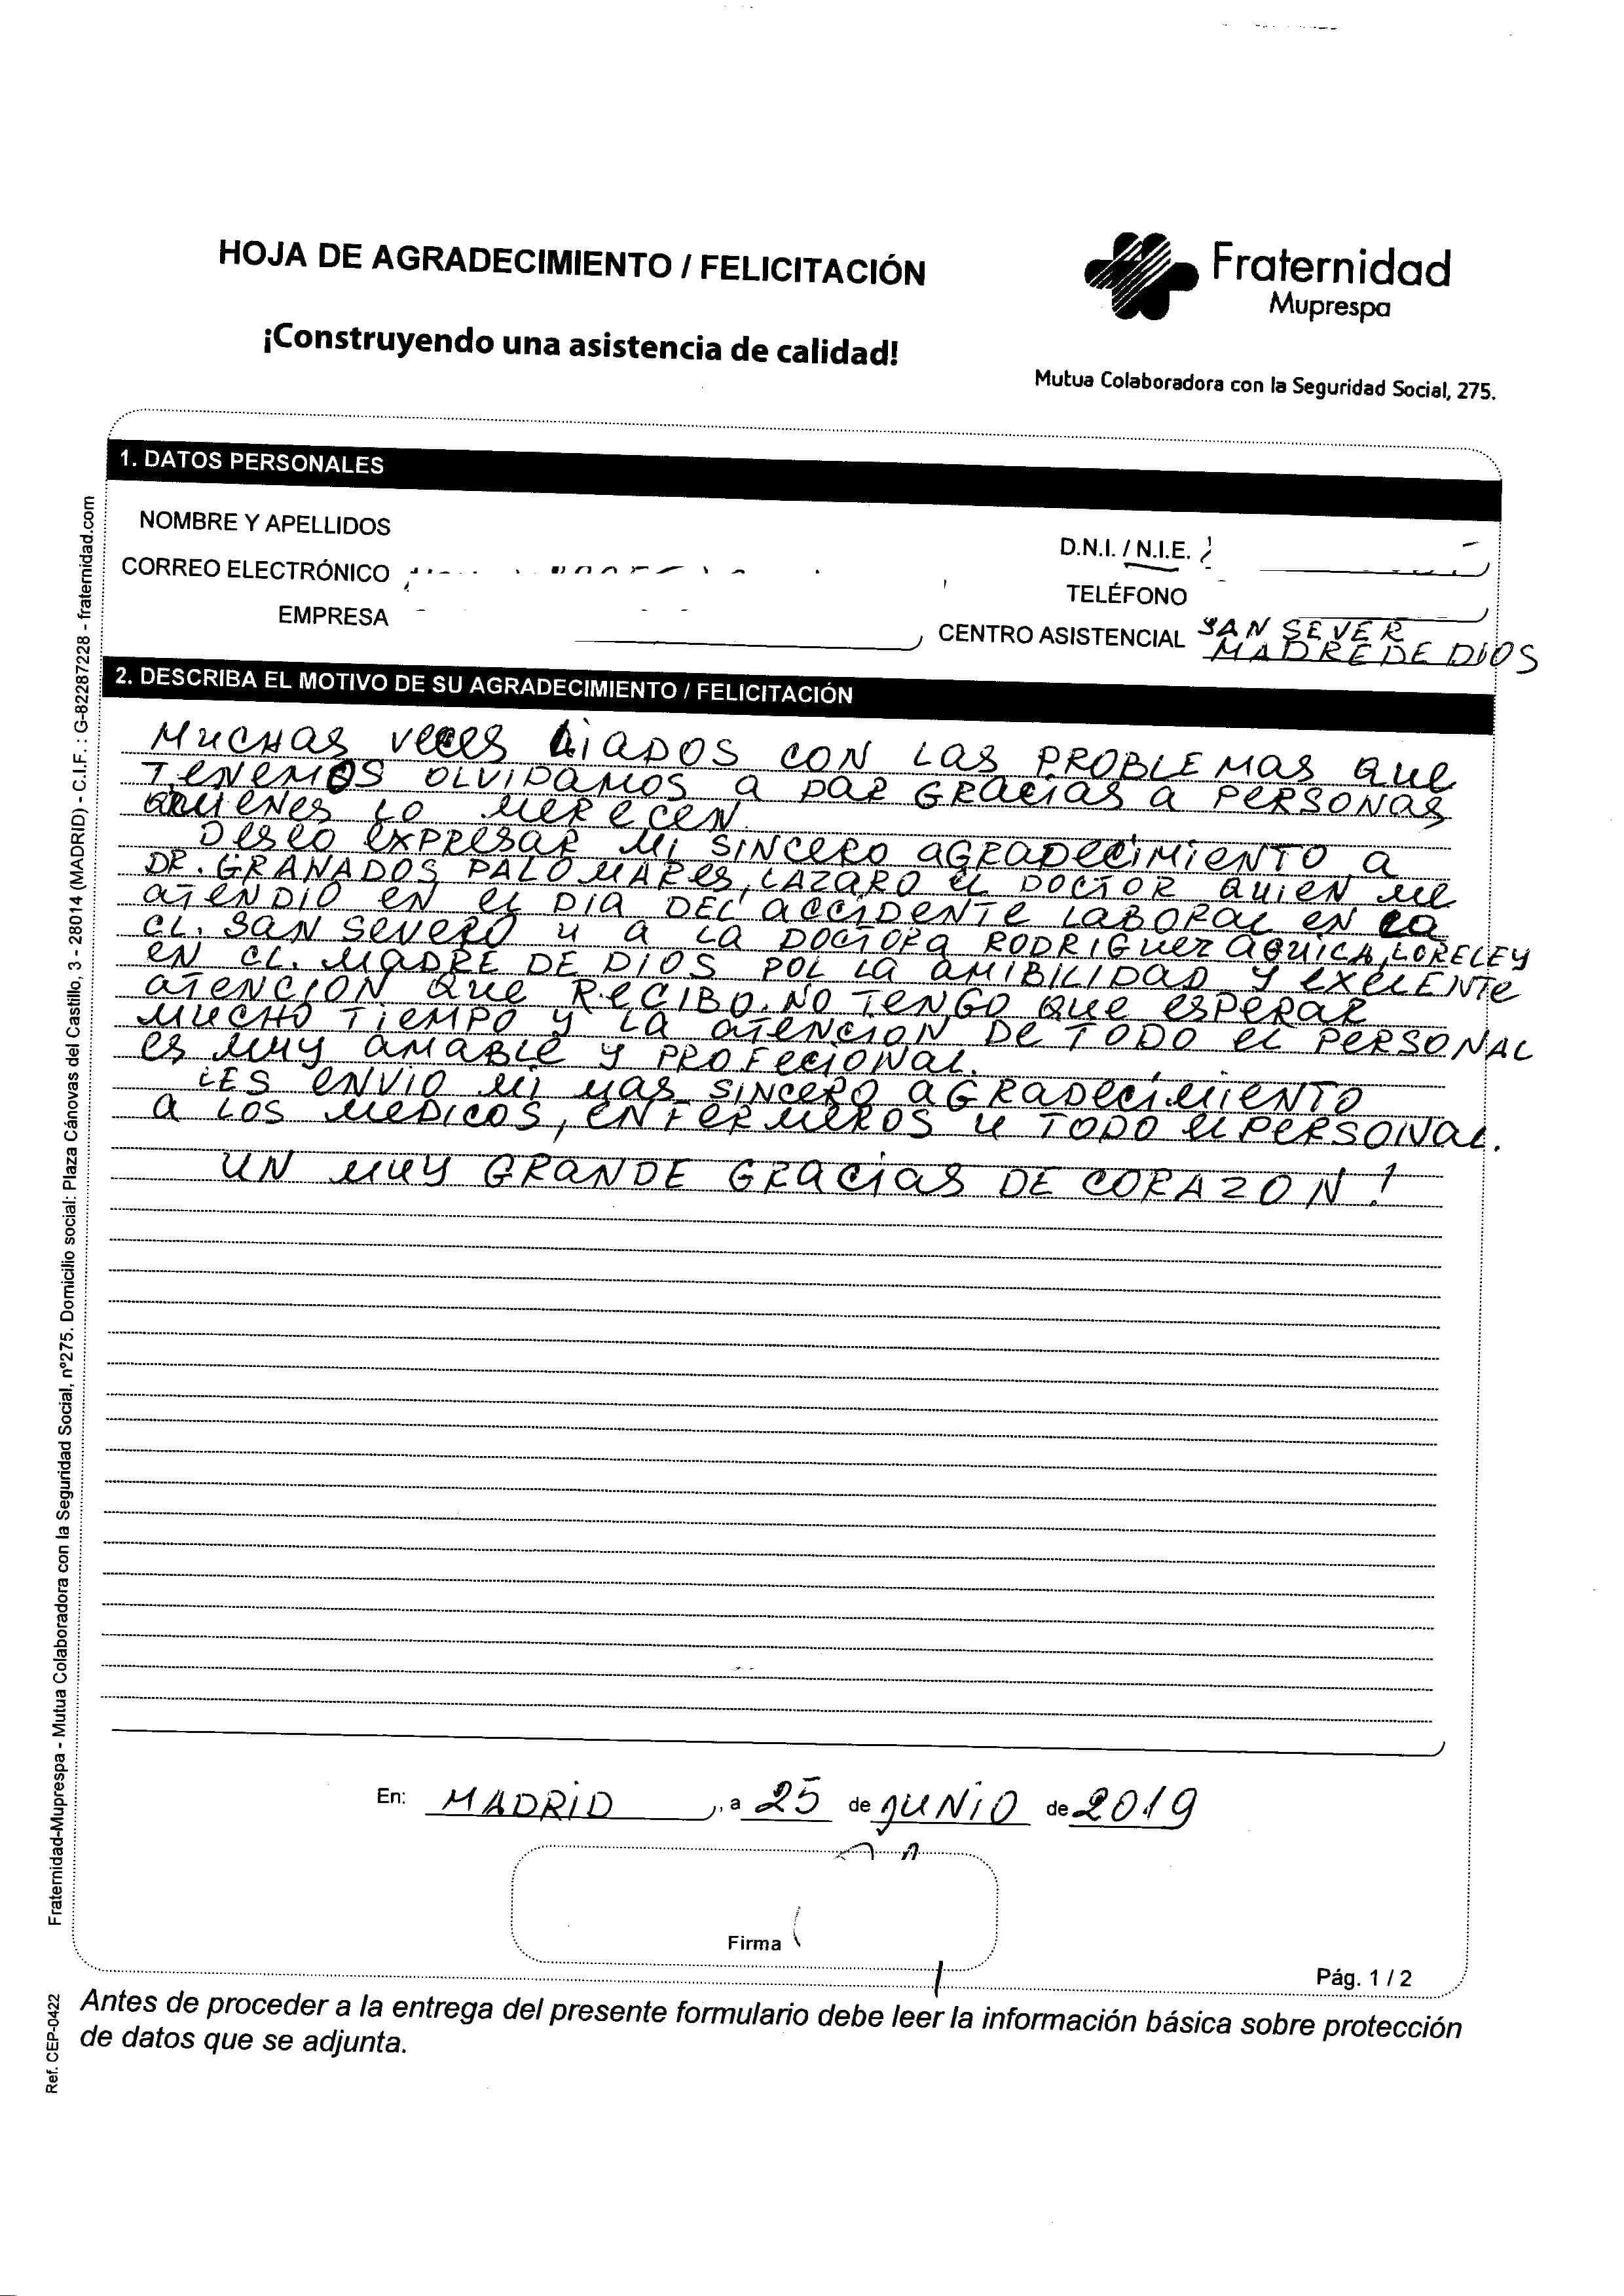 HOJA DE AGRADECIMIENTO / FELICITACIÓN
¡Construyendo una asistencia de calidad!
Fraternidad
Muprespa
Mutua Colaboradora con la Seguridad Social, 275.
1. DATOS PERSONALES
NOMBRE Y APELLIDOS
D.N.I. / N.I.E.
CORREO ELECTRÓNICO
TELÉFONO
EMPRESA
CENTRO ASISTENCIAL SAN SEVER
MADRE DE DIOS
2. DESCRIBA EL MOTIVO DE SU AGRADECIMIENTO / FELICITACIÓN
MUCHAS VECES LIADOS CON LAS PROBLEMAS QUE
TENEMOS OLVIDAMOS A DAR GRACIAS A PERSONAS
QUIENES LO MERECEN.
DESEO EXPRESAR MI SINCERO AGRADECIMIENTO A
DR. GRANADOS PALOMARES, LAZARO EL DOCTOR QUIEN ME
ATENDIO EN EL DIA DEL ACCIDENTE LABORAL EN LA
CL. SAN SEVERO Y A LA DOCTORA RODRIGUEZ AGUICA, LORELEY
EN CL. MADRE DE DIOS POL LA AMIBILIDAD Y EXELENTE
ATENCION QUE RECIBO. NO TENGO QUE ESPERAR
MUCHO TIEMPO Y LA ATENCION DE TODO EL PERSONAL
ES MUY AMABLE Y PROFECIONAL.
LES ENVIO MI MAS SINCERO AGRADECIMIENTO
A LOS MEDICOS, ENFERMEROS Y TODO EL PERSONAL.
UN MUY GRANDE GRACIAS DE CORAZON!
En: MADRID, a 25 de JUNIO de 2019
Firma
Pág. 1 / 2
Antes de proceder a la entrega del presente formulario debe leer la información básica sobre protección
de datos que se adjunta.
Fraternidad-Muprespa - Mutua Colaboradora con la Seguridad Social, nº275. Domicilio social: Plaza Cánovas del Castillo, 3 - 28014 (MADRID) - C.I.F. : G-82287228 - fraternidad.com
Ref. CEP-0422